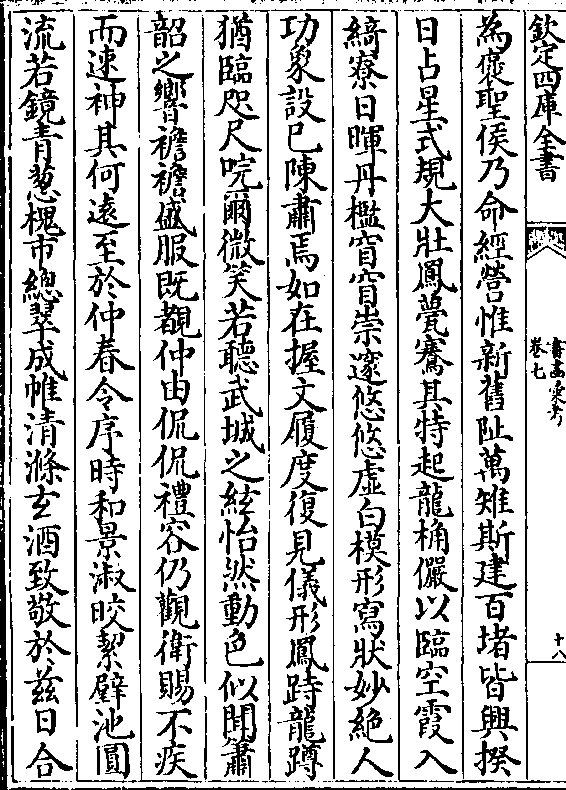 欽定四庫全書
書畫彙考
卷七
十八
為褒聖侯乃命經營惟新舊阯萬雉斯建百堵皆興揆
日占星式規大壯鳳甍騫其特起龍桷儼以臨空霞入
綺寮日暉丹檻窅窅崇邃悠悠虛白模形寫狀妙絕人
功象設已陳肅焉如在握文履度復見儀形鳳跱龍蹲
猶臨咫尺唍爾微笑若聽武城之絃怡然動色似聞簫
韶之響襜襜盛服既覩仲由侃侃禮容仍觀衛賜不疾
而速神其何遠至於仲春令序時和景淑皎絜璧池圓
流若鏡青葱槐市總翠成帷清滌玄酒致敬於兹日合